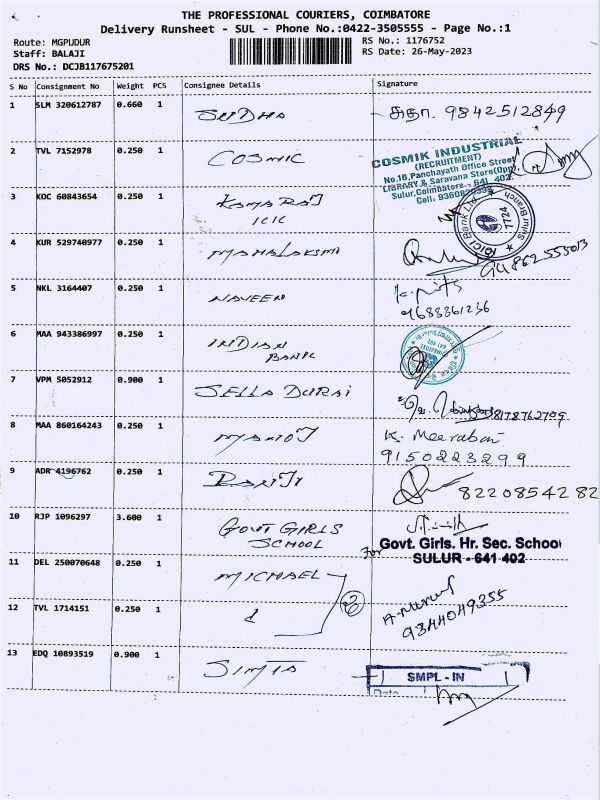 THE PROFESSIONAL COURIERS, COIMBATORE
Delivery Runsheet - SUL - Phone No.:0422-3505555 - Page No.:1
Route: MGPUDUR
Staff: BALAJI
DRS No.: DCJB117675201
RS No.: 1176752
RS Date: 26-May-2023
S No Consignment No Weight PCS Consignee Details Signature
1 SLM 320612787 0.660 1 SUDHA சுதா. 9842512849
2 TVL 7152978 0.250 1 COSMIC
COSMIK INDUSTRIAL
(RECRUITMENT)
No.16, Panchayath Office Street
LIBRARY & Saravana Store(Opp)
Sulur, Coimbatore - 641 402.
Cell,
3 KOC 60843654 0.250 1 KAMARAJ
ICIC
ICICI Bank Ltd. Sulur Branch
7724
4 KUR 529740977 0.250 1 MAHALAKSMI
5 NKL 3164407 0.250 1 NAVEEN
9688861236
6 MAA 943386997 0.250 1 INDIAN
BANK
7 VPM 5052912 0.900 1 SELLA DURAI
8 MAA 860164243 0.250 1 MANOJ K. Meeraban
9150223299
9 ADR 4196762 0.250 1 RANJI 8220854282
10 RJP 1096297 3.600 1 GOVT GIRLS
SCHOOL
For Govt. Girls. Hr. Sec. School
SULUR - 641 402
11 DEL 250070648 0.250 1 MICHAEL
12 TVL 1714151 0.250 1
9344049355
13 EDQ 10893519 0.900 1 SIMTA
SMPL - IN
Date